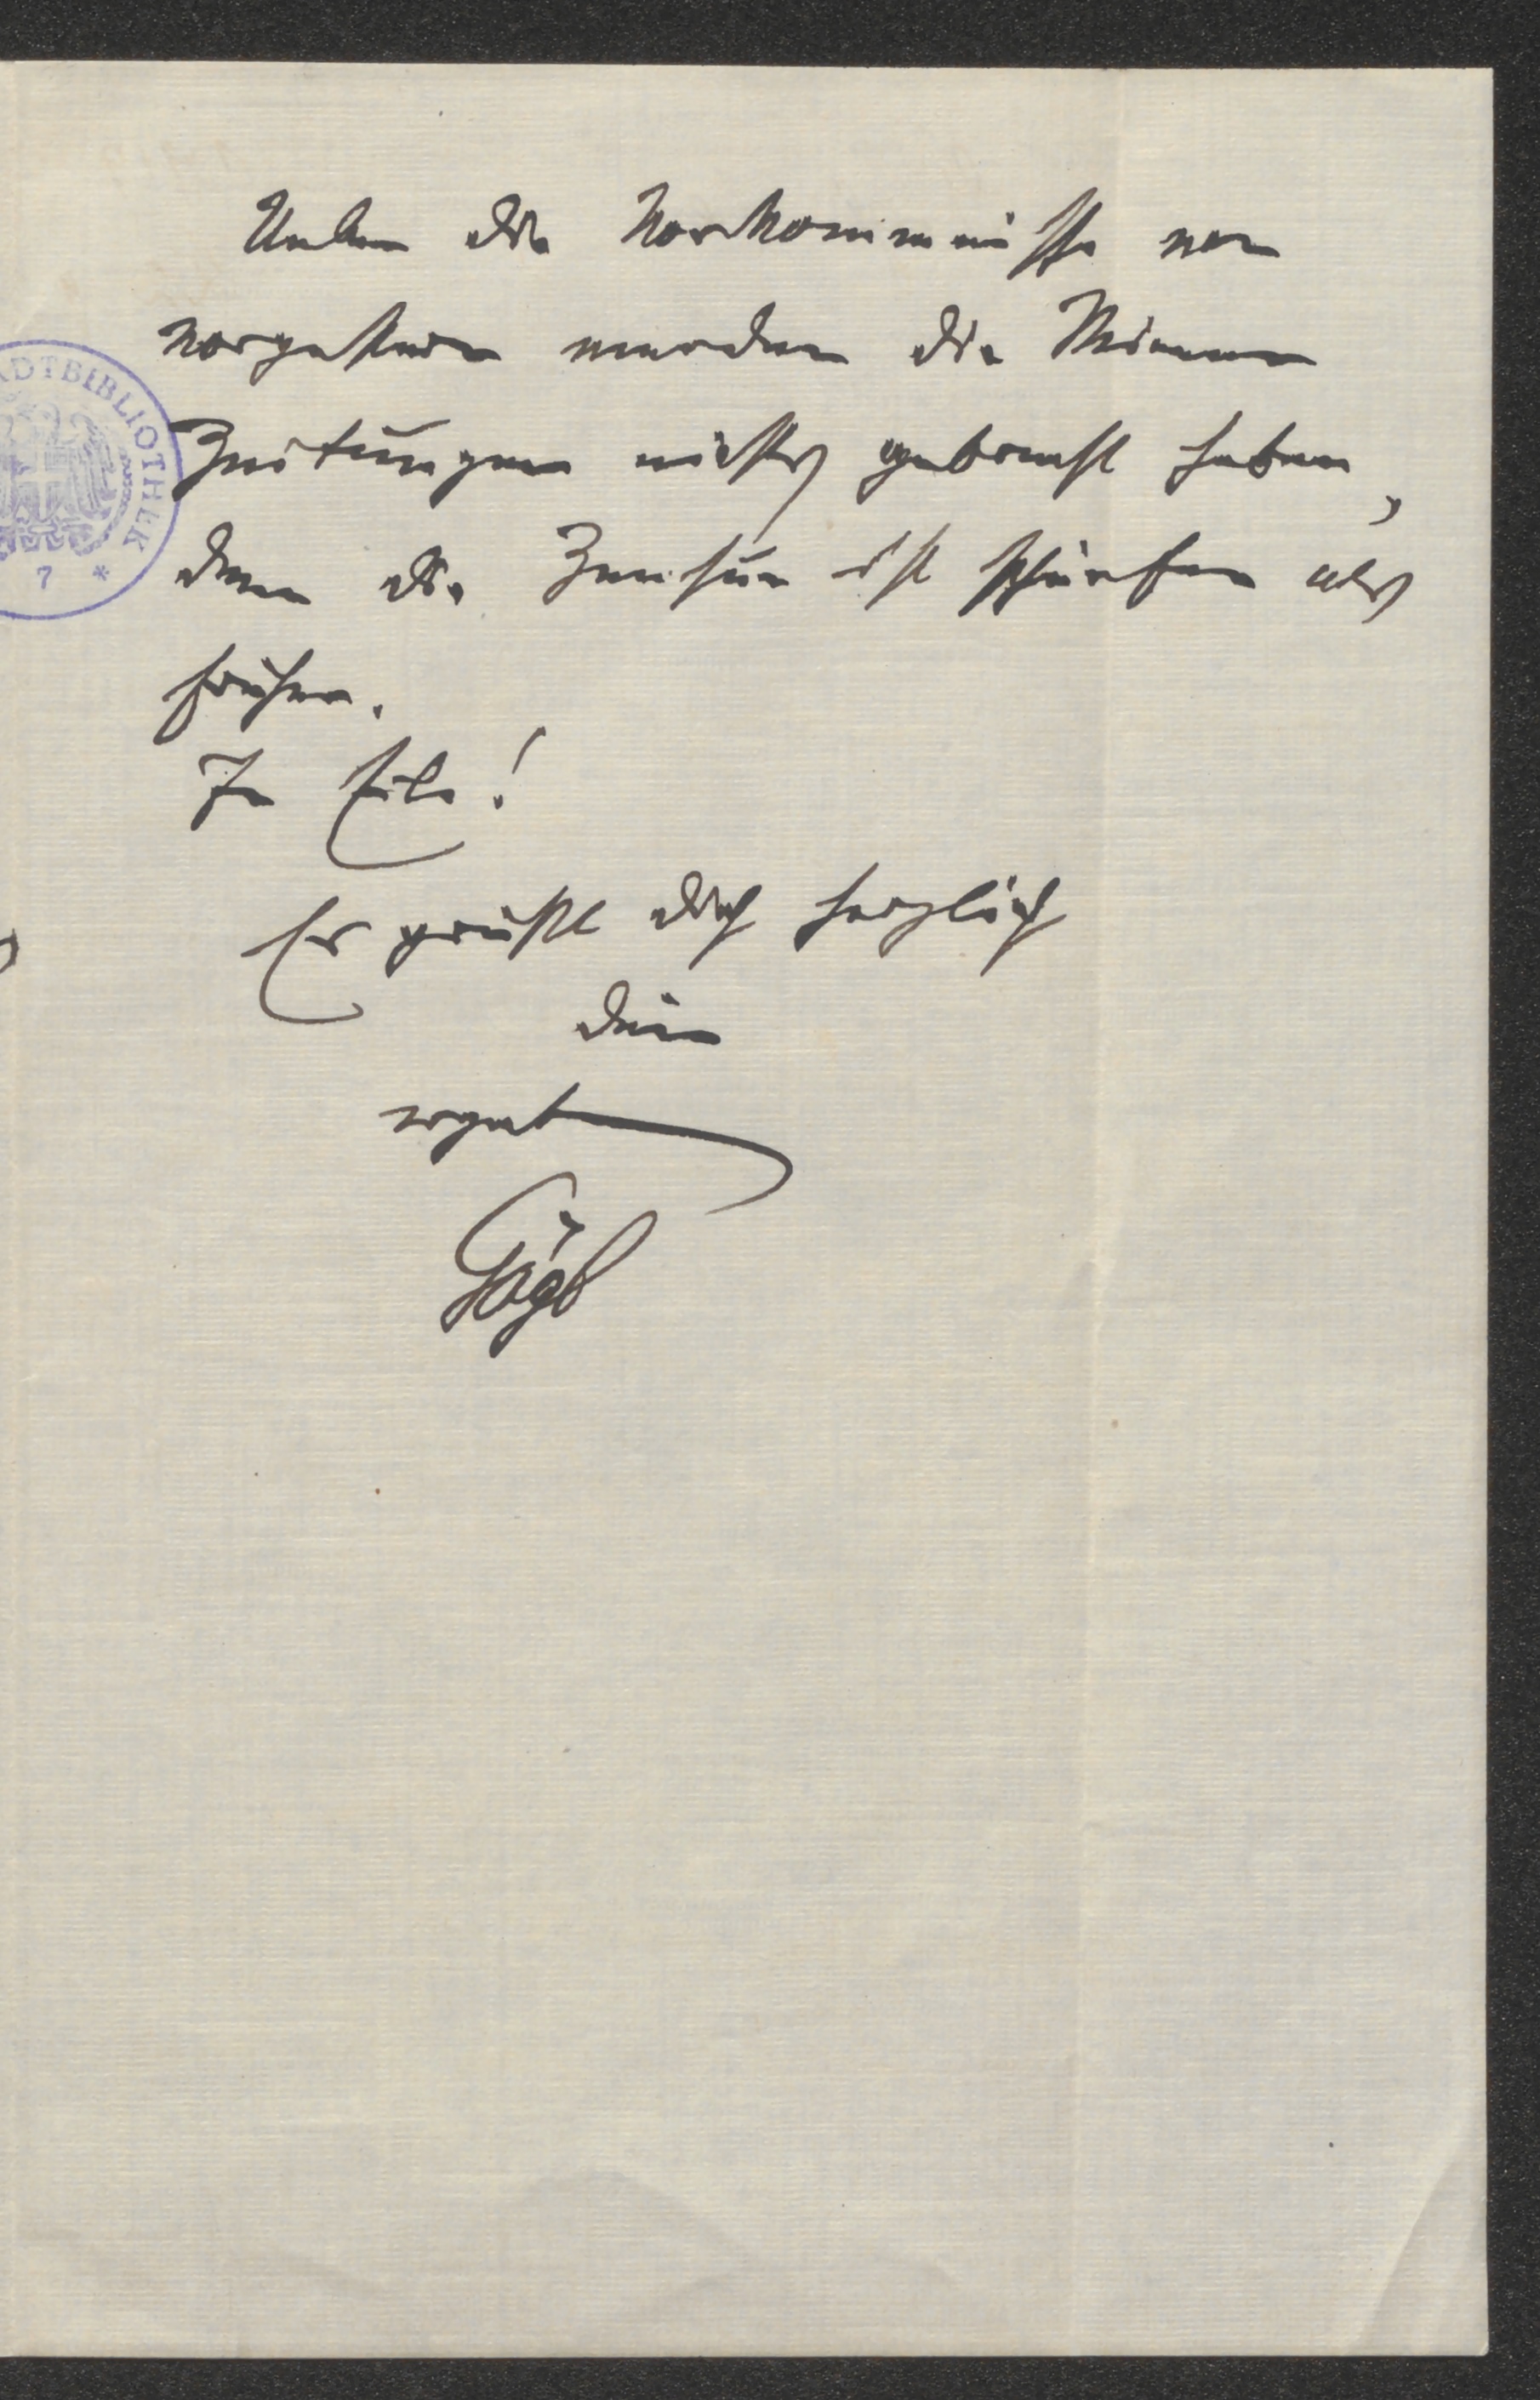 Ueber die Vorkommnisse von
vorgestern werden die Wiener
Zeitungen nichts gebracht haben,
denn die Zensur ist schärfer als
früher.
In Eile!
Es grüßt dich herzlich
dein
ergeb
ADTBIBLIOTHEK
7 *